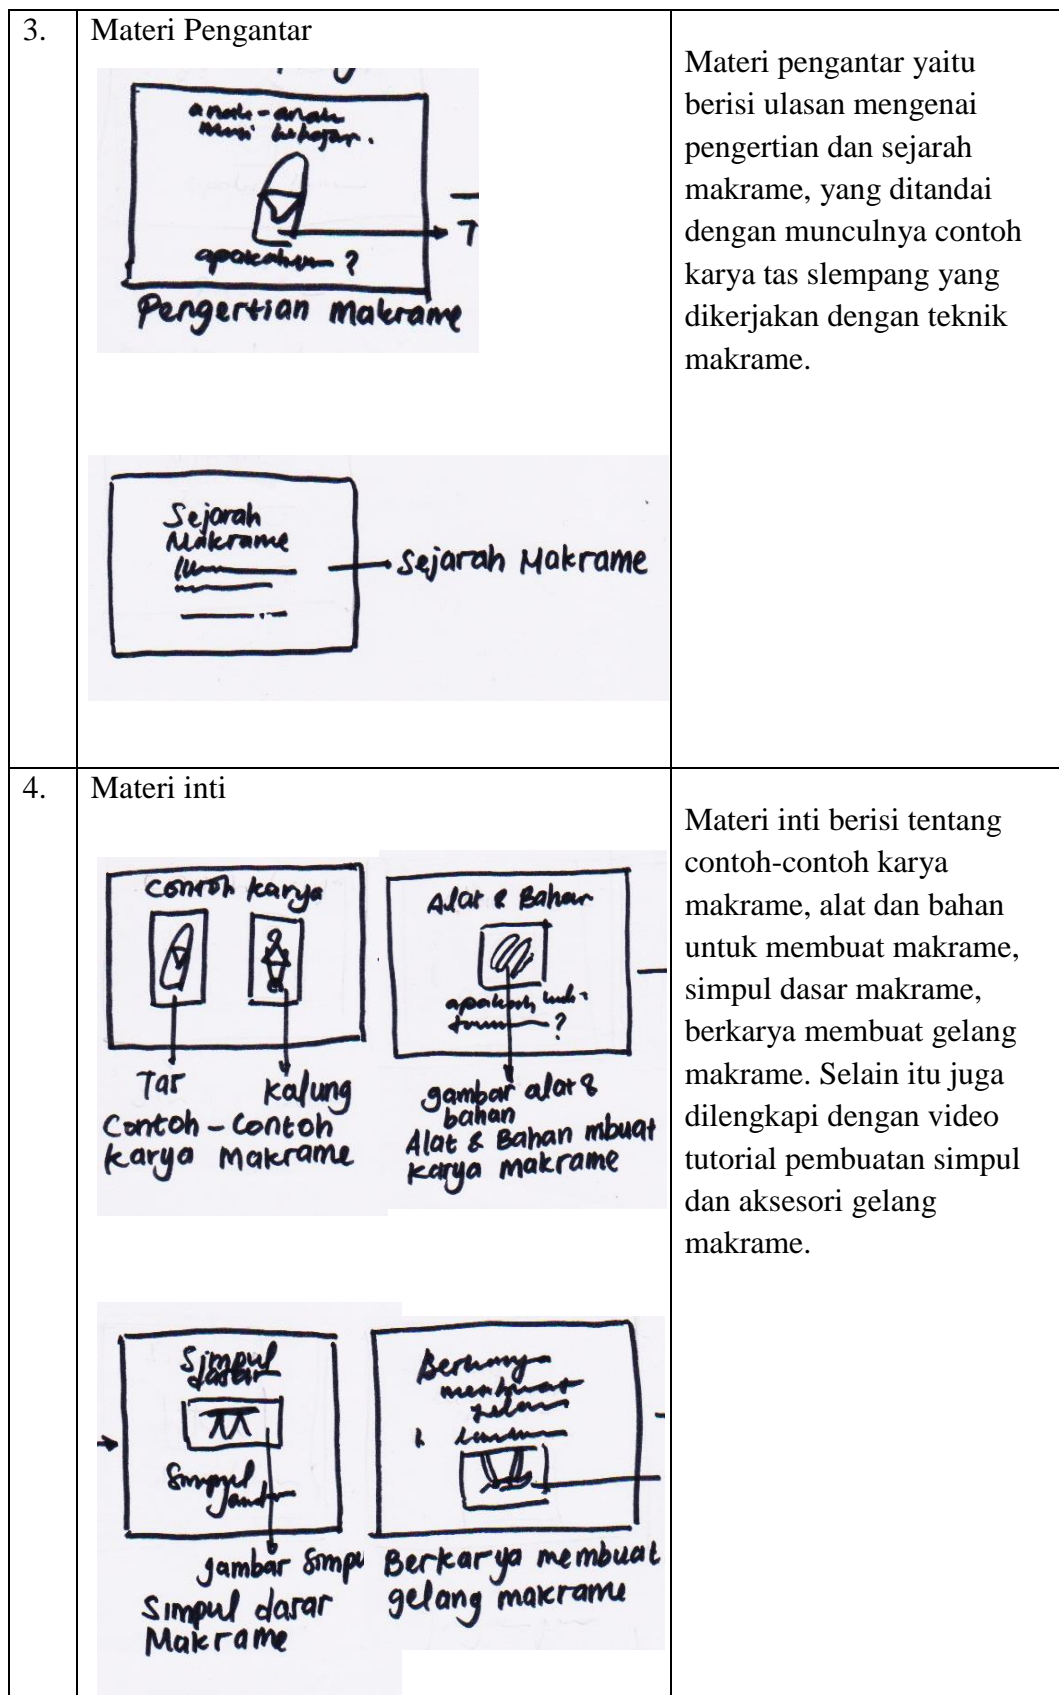 3.
Materi Pengantar
anak-anak
mari belajar.
?
Pengertian Makrame
Sejarah
Makrame
Sejarah Makrame
Materi pengantar yaitu
berisi ulasan mengenai
pengertian dan sejarah
makrame, yang ditandai
dengan munculnya contoh
karya tas slempang yang
dikerjakan dengan teknik
makrame.
4.
Materi inti
Contoh karya
Tas
Kalung
Contoh-Contoh
karya Makrame
Alat & Bahan
apakah
?
gambar alat &
bahan
Alat & Bahan mbuat
karya makrame
Simpul
dasar
Simpul
gambar simpu
Simpul dasar
Makrame
Berkarya
membuat
Berkarya membuat
gelang makrame
Materi inti berisi tentang
contoh-contoh karya
makrame, alat dan bahan
untuk membuat makrame,
simpul dasar makrame,
berkarya membuat gelang
makrame. Selain itu juga
dilengkapi dengan video
tutorial pembuatan simpul
dan aksesori gelang
makrame.